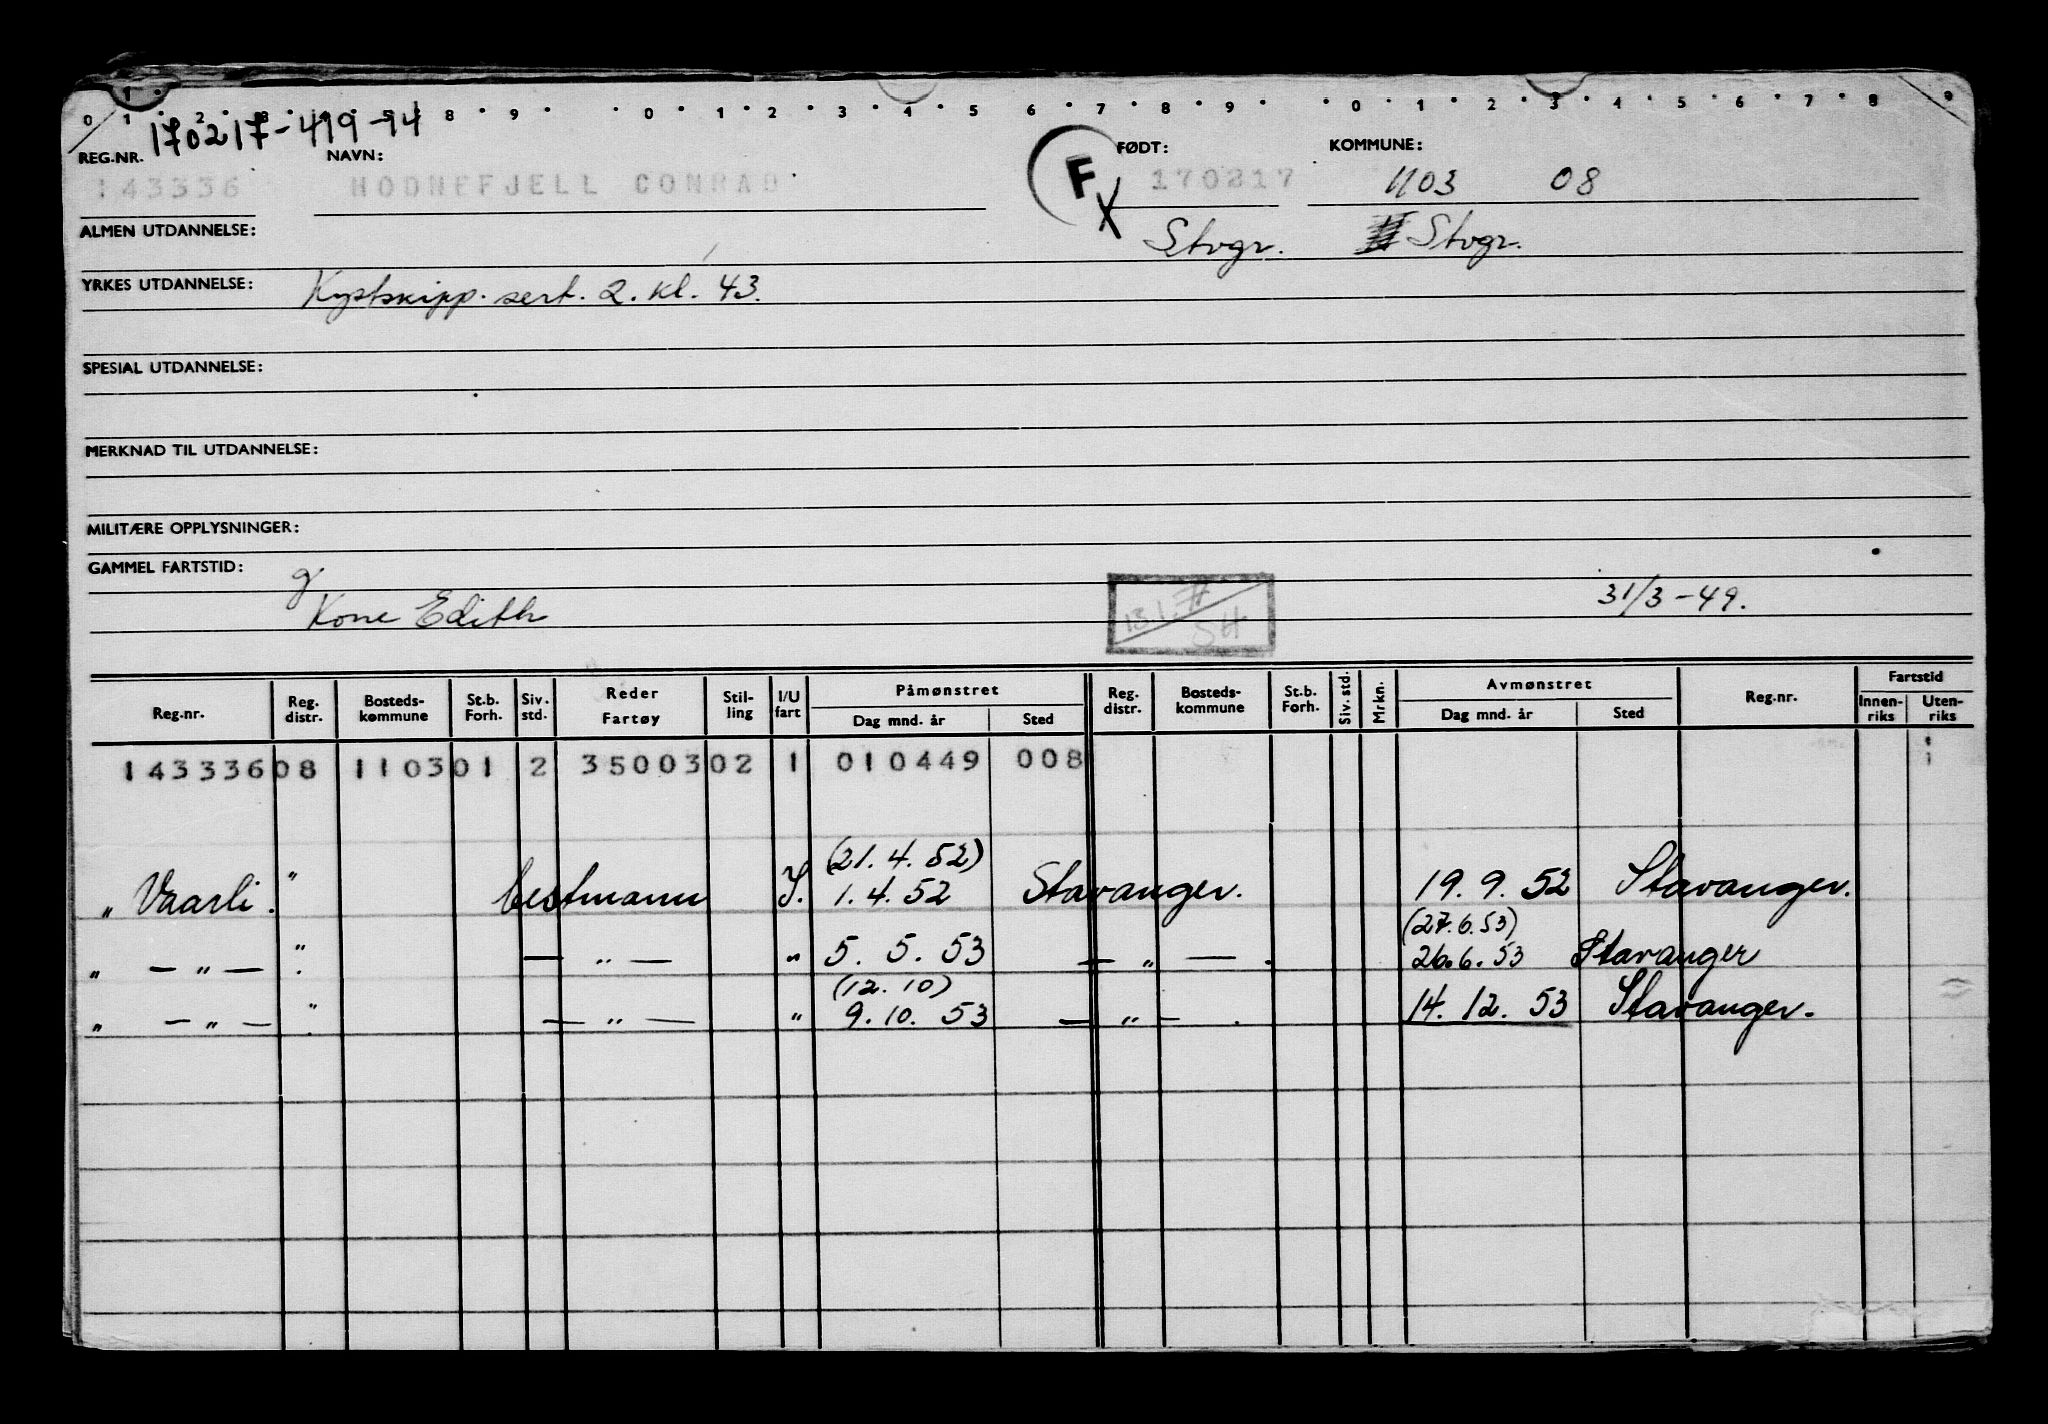 0 1 2 3 8 9 0 1 2 3 4 5 6 7 8 9 0 1 2 3 4 5 6 7 8 9
170217-419-14
REG.NR. NAVN: FØDT: KOMMUNE:
143336 HODNEFJELL CONRAD F X 170217 1103 08
ALMEN UTDANNELSE: Stvgr. Stvgr.
YRKES UTDANNELSE: Kystskipp. sert. 2. kl. 43.
SPESIAL UTDANNELSE:
MERKNAD TIL UTDANNELSE:
MILITÆRE OPPLYSNINGER:
GAMMEL FARTSTID: g
Kone Edith 31/3-49.
Reg.nr. Reg. distr. Bosteds-kommune St.b. Forh. Siv. std. Reder Fartøy Stil-ling I/U fart Påmønstret Dag mnd. år Sted Reg. distr. Bosteds-kommune St.b. Forh. Siv. std. Mrkn. Avmønstret Dag mnd. år Sted Reg.nr. Fartstid Innen-riks Uten-riks
143336 08 1103 01 2 35003 02 1 010449 008
(21.4.52)
" Vaarli. " bestmann I. 1.4.52 Stavanger. 19.9.52 Stavanger.
(27.6.53)
" — " — " — " — " 5.5.53 — " — . 26.6.53 Stavanger
(12.10)
" — " — " — " — " 9.10.53 — " — . 14.12.53 Stavanger.